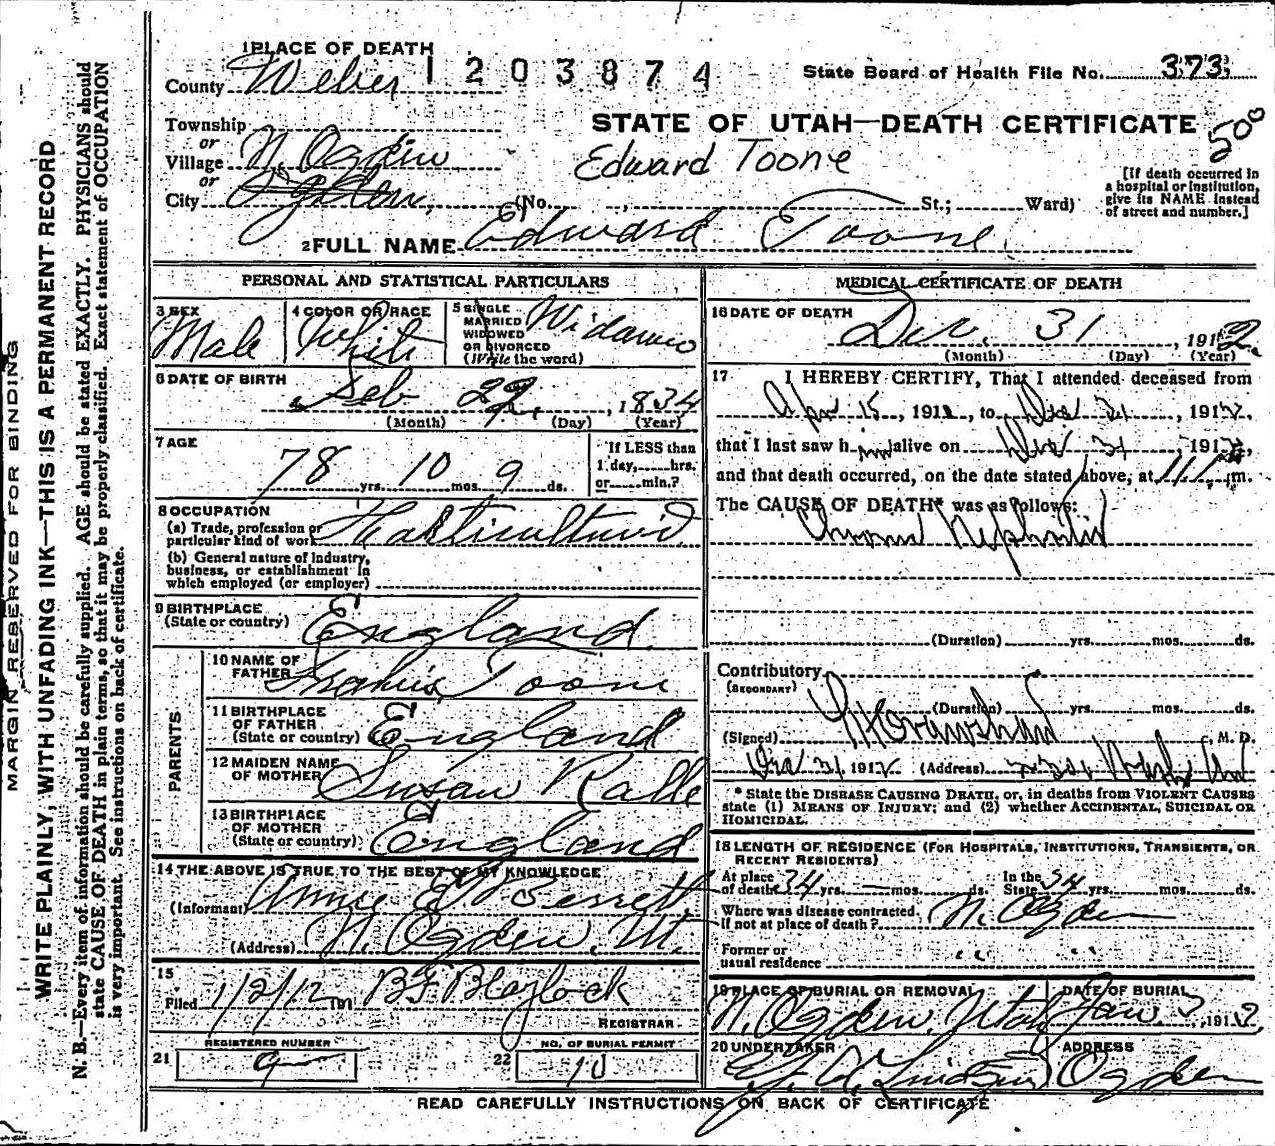 MARGIN RESERVED FOR BINDING
WRITE PLAINLY, WITH UNFADING INK—THIS IS A PERMANENT RECORD
N. B.—Every item of information should be carefully supplied. AGE should be stated EXACTLY. PHYSICIANS should
state CAUSE OF DEATH in plain terms, so that it may be properly classified. Exact statement of OCCUPATION
is very important. See instructions on back of certificate.
1 PLACE OF DEATH
County Weber 1203874
State Board of Health File No. 373
STATE OF UTAH—DEATH CERTIFICATE
500
Township
or
Village N. Ogden
or
City Ogden, (No. , St.; Ward)
Edward Toone
[If death occurred in
a hospital or institution,
give its NAME instead
of street and number.]
2 FULL NAME Edward Toone
PERSONAL AND STATISTICAL PARTICULARS
3 SEX Male
4 COLOR OR RACE White
5 SINGLE
MARRIED
WIDOWED
OR DIVORCED
(Write the word)
6 DATE OF BIRTH
Feb 22, 1834
(Month) (Day) (Year)
7 AGE
78 yrs. 10 mos. 9 ds.
If LESS than
1 day, hrs.
or min.?
8 OCCUPATION
(a) Trade, profession or
particular kind of work
(b) General nature of industry,
business, or establishment in
which employed (or employer)
9 BIRTHPLACE
(State or country) England
PARENTS
10 NAME OF
FATHER Francis Toone
11 BIRTHPLACE
OF FATHER
(State or country) England
12 MAIDEN NAME
OF MOTHER Susan
13 BIRTHPLACE
OF MOTHER
(State or country) England
14 THE ABOVE IS TRUE TO THE BEST OF MY KNOWLEDGE
(Informant) Annie E Berrett
(Address) N. Ogden, Ut.
15
Filed 1/2/12 191 B F Blaylock
REGISTRAR
21 REGISTERED NUMBER
9
22 NO. OF BURIAL PERMIT
10
MEDICAL CERTIFICATE OF DEATH
16 DATE OF DEATH
Dec. 31, 1912
(Month) (Day) (Year)
17 I HEREBY CERTIFY, That I attended deceased from
Apr 15, 1912, to Dec 31, 1912,
that I last saw him alive on Dec 31, 1912,
and that death occurred, on the date stated above, at m.
The CAUSE OF DEATH* was as follows:
Nephritis
(Duration) yrs. mos. ds.
Contributory
(SECONDARY)
(Duration) yrs. mos. ds.
(Signed) M. D.
Dec 31 1912 (Address)
* State the DISEASE CAUSING DEATH, or, in deaths from VIOLENT CAUSES
state (1) MEANS OF INJURY; and (2) whether ACCIDENTAL, SUICIDAL OR
HOMICIDAL.
18 LENGTH OF RESIDENCE (FOR HOSPITALS, INSTITUTIONS, TRANSIENTS, OR
RECENT RESIDENTS)
At place
of death 34 yrs. — mos. ds.
In the
State 34 yrs. mos. ds.
Where was disease contracted,
if not at place of death? N. Ogden
Former or
usual residence " "
19 PLACE OF BURIAL OR REMOVAL
N. Ogden, Utah
DATE OF BURIAL
Jan. 3, 1913
20 UNDERTAKER
Lindsay
ADDRESS
Ogden
READ CAREFULLY INSTRUCTIONS ON BACK OF CERTIFICATE